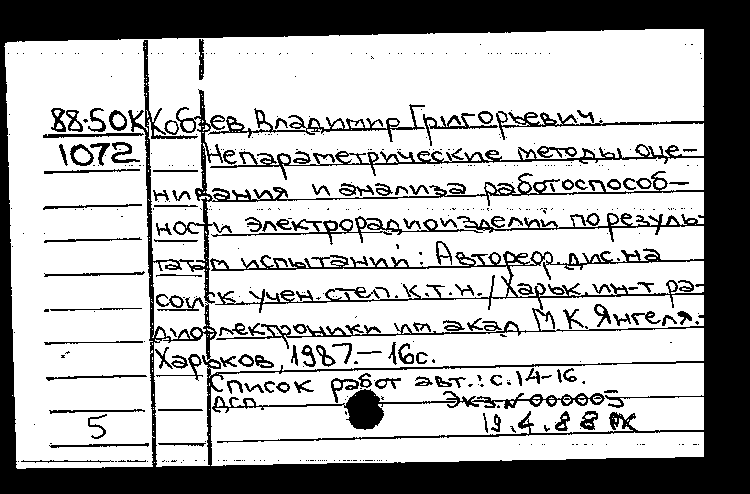 88-50К Кобзев, Владимир Григорьевич.
1072 Непараметрические методы оце-
нивания и анализа работоспособ-
ности электрорадиоизделий по резуль-
татам испытаний: Автореф. дис. на
соиск. учен. степ. к.т.н. / Харьк. ин-т ра-
диоэлектроники им. акад. М.К. Янгеля.-
Харьков, 1987. - 16с.
Список работ авт.: с.14-16.
ДСП. Экз. № 000005
5 19.4.88 РК